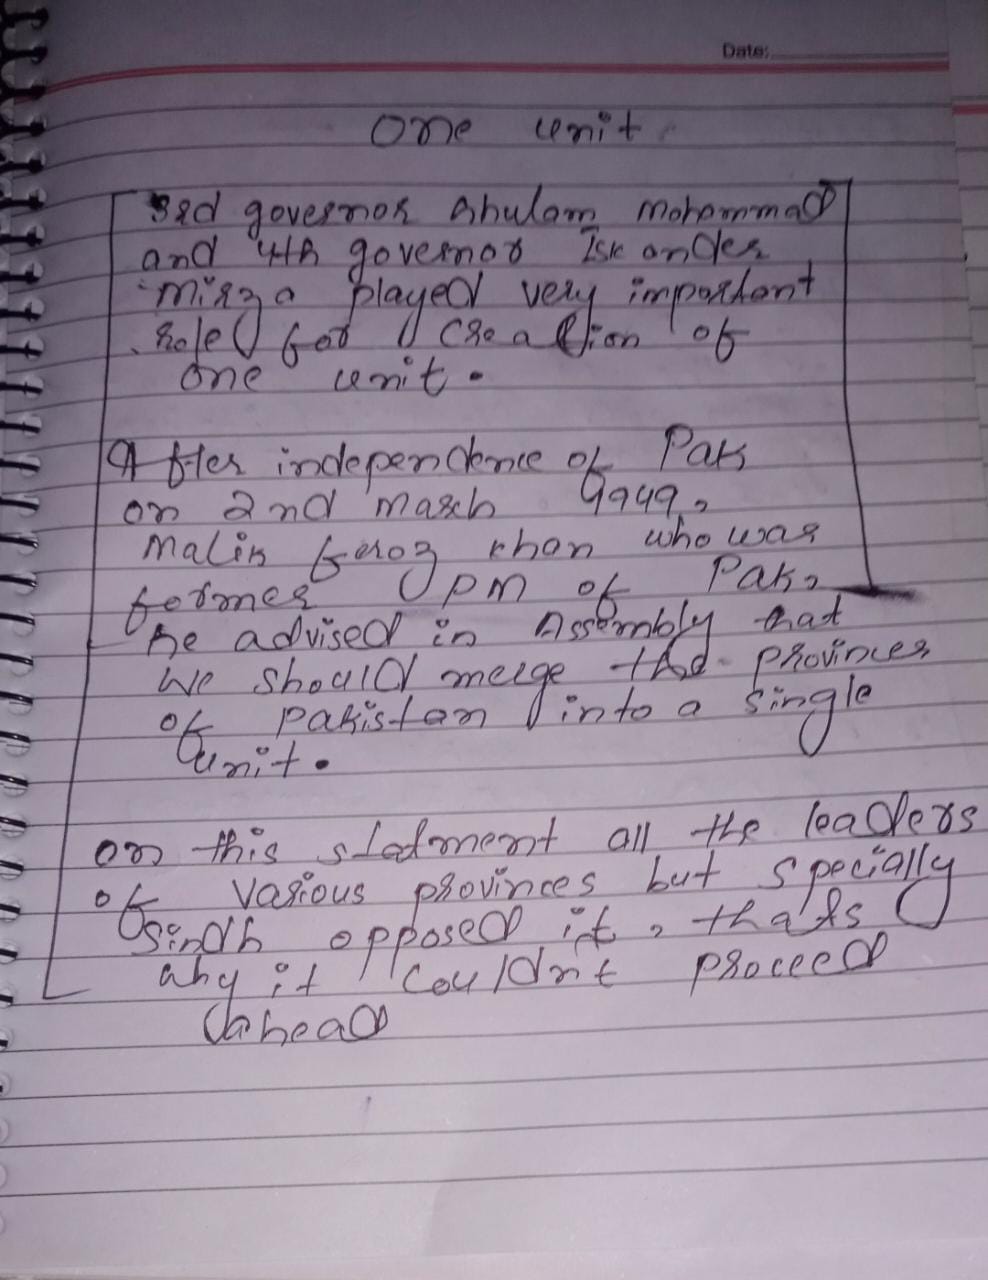 Date:
One unit
3rd governor Ghulam Mohammad
and 4th governor Iskander
mirza played very important
role for creation of
one unit.
After independence of Pak
on 2nd march 9949,
Malik feroz khan who was
former PM of Pak,
he advised in Assembly that
we should merge the provinces
of pakistan into a single
unit.
on this statment all the leaders
of various provinces but specially
Sindh opposed it, that's
why it couldn't proceed
ahead